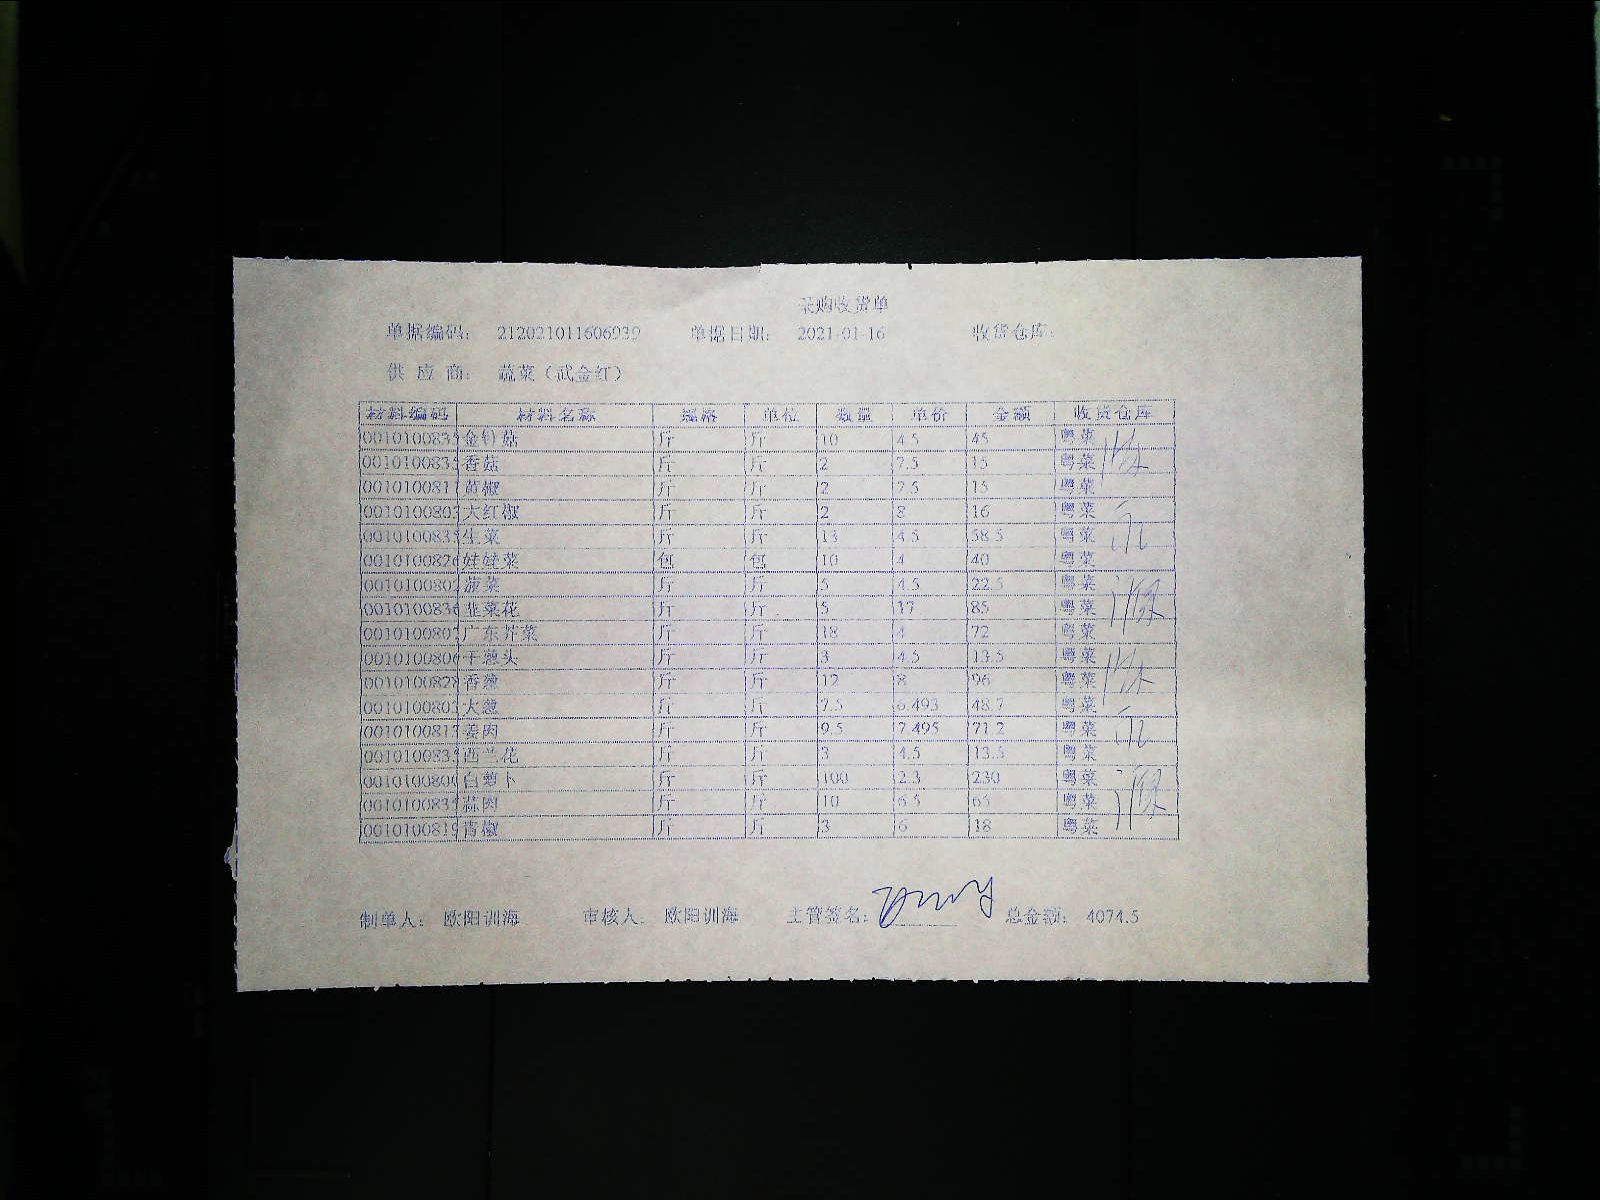 采购收货单
单据编码： 212021011606939 单据日期： 2021-01-16 收货仓库：
供 应 商： 蔬菜（武金红）
材料编码 材料名称 规格 单位 数量 单价 金额 收货仓库
0010100835 金针菇 斤 斤 10 4.5 45 粤菜
0010100835 香菇 斤 斤 2 7.5 15 粤菜
0010100811 黄椒 斤 斤 2 7.5 15 粤菜
0010100803 大红椒 斤 斤 2 8 16 粤菜
0010100835 生菜 斤 斤 13 4.5 58.5 粤菜
0010100826 娃娃菜 包 包 10 4 40 粤菜
0010100802 菠菜 斤 斤 5 4.5 22.5 粤菜
0010100836 韭菜花 斤 斤 5 17 85 粤菜
0010100807 广东芥菜 斤 斤 18 4 72 粤菜
0010100806 干葱头 斤 斤 3 4.5 13.5 粤菜
0010100828 香葱 斤 斤 12 8 96 粤菜
0010100803 大葱 斤 斤 7.5 6.493 48.7 粤菜
0010100813 姜肉 斤 斤 9.5 7.495 71.2 粤菜
0010100835 西兰花 斤 斤 3 4.5 13.5 粤菜
0010100800 白萝卜 斤 斤 100 2.3 230 粤菜
0010100835 蒜肉 斤 斤 10 6.5 65 粤菜
0010100819 青椒 斤 斤 3 6 18 粤菜
制单人： 欧阳训海 审核人： 欧阳训海 主管签名： 总金额： 4074.5